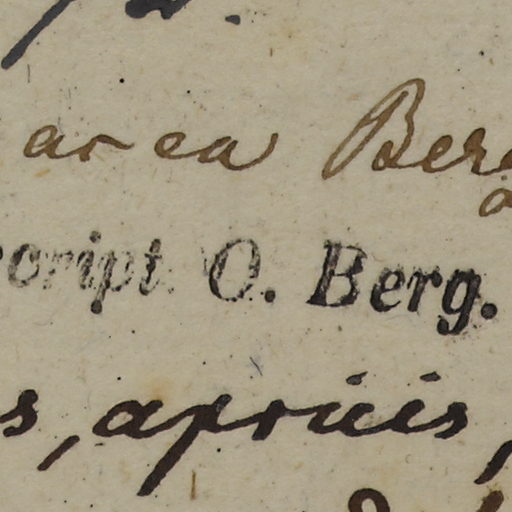 area Berg
script. O. Berg.
s, apricis,